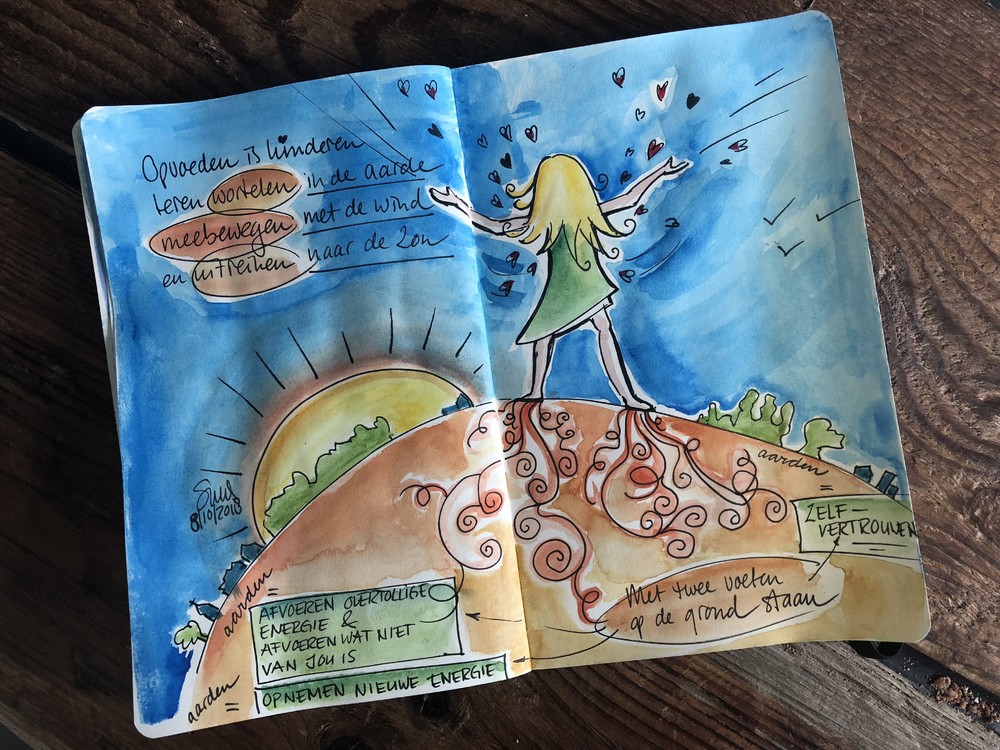 Opvoeden is kinderen
leren wortelen in de aarde
meebewegen met de wind
en uitreiken naar de zon
8/10/2018
aarden
=
ZELF-
VERTROUWEN
Met twee voeten
op de grond staan
aarden
=
AFVOEREN OVERTOLLIGE
ENERGIE &
AFVOEREN WAT NIET
VAN JOU IS
aarden
=
OPNEMEN NIEUWE ENERGIE